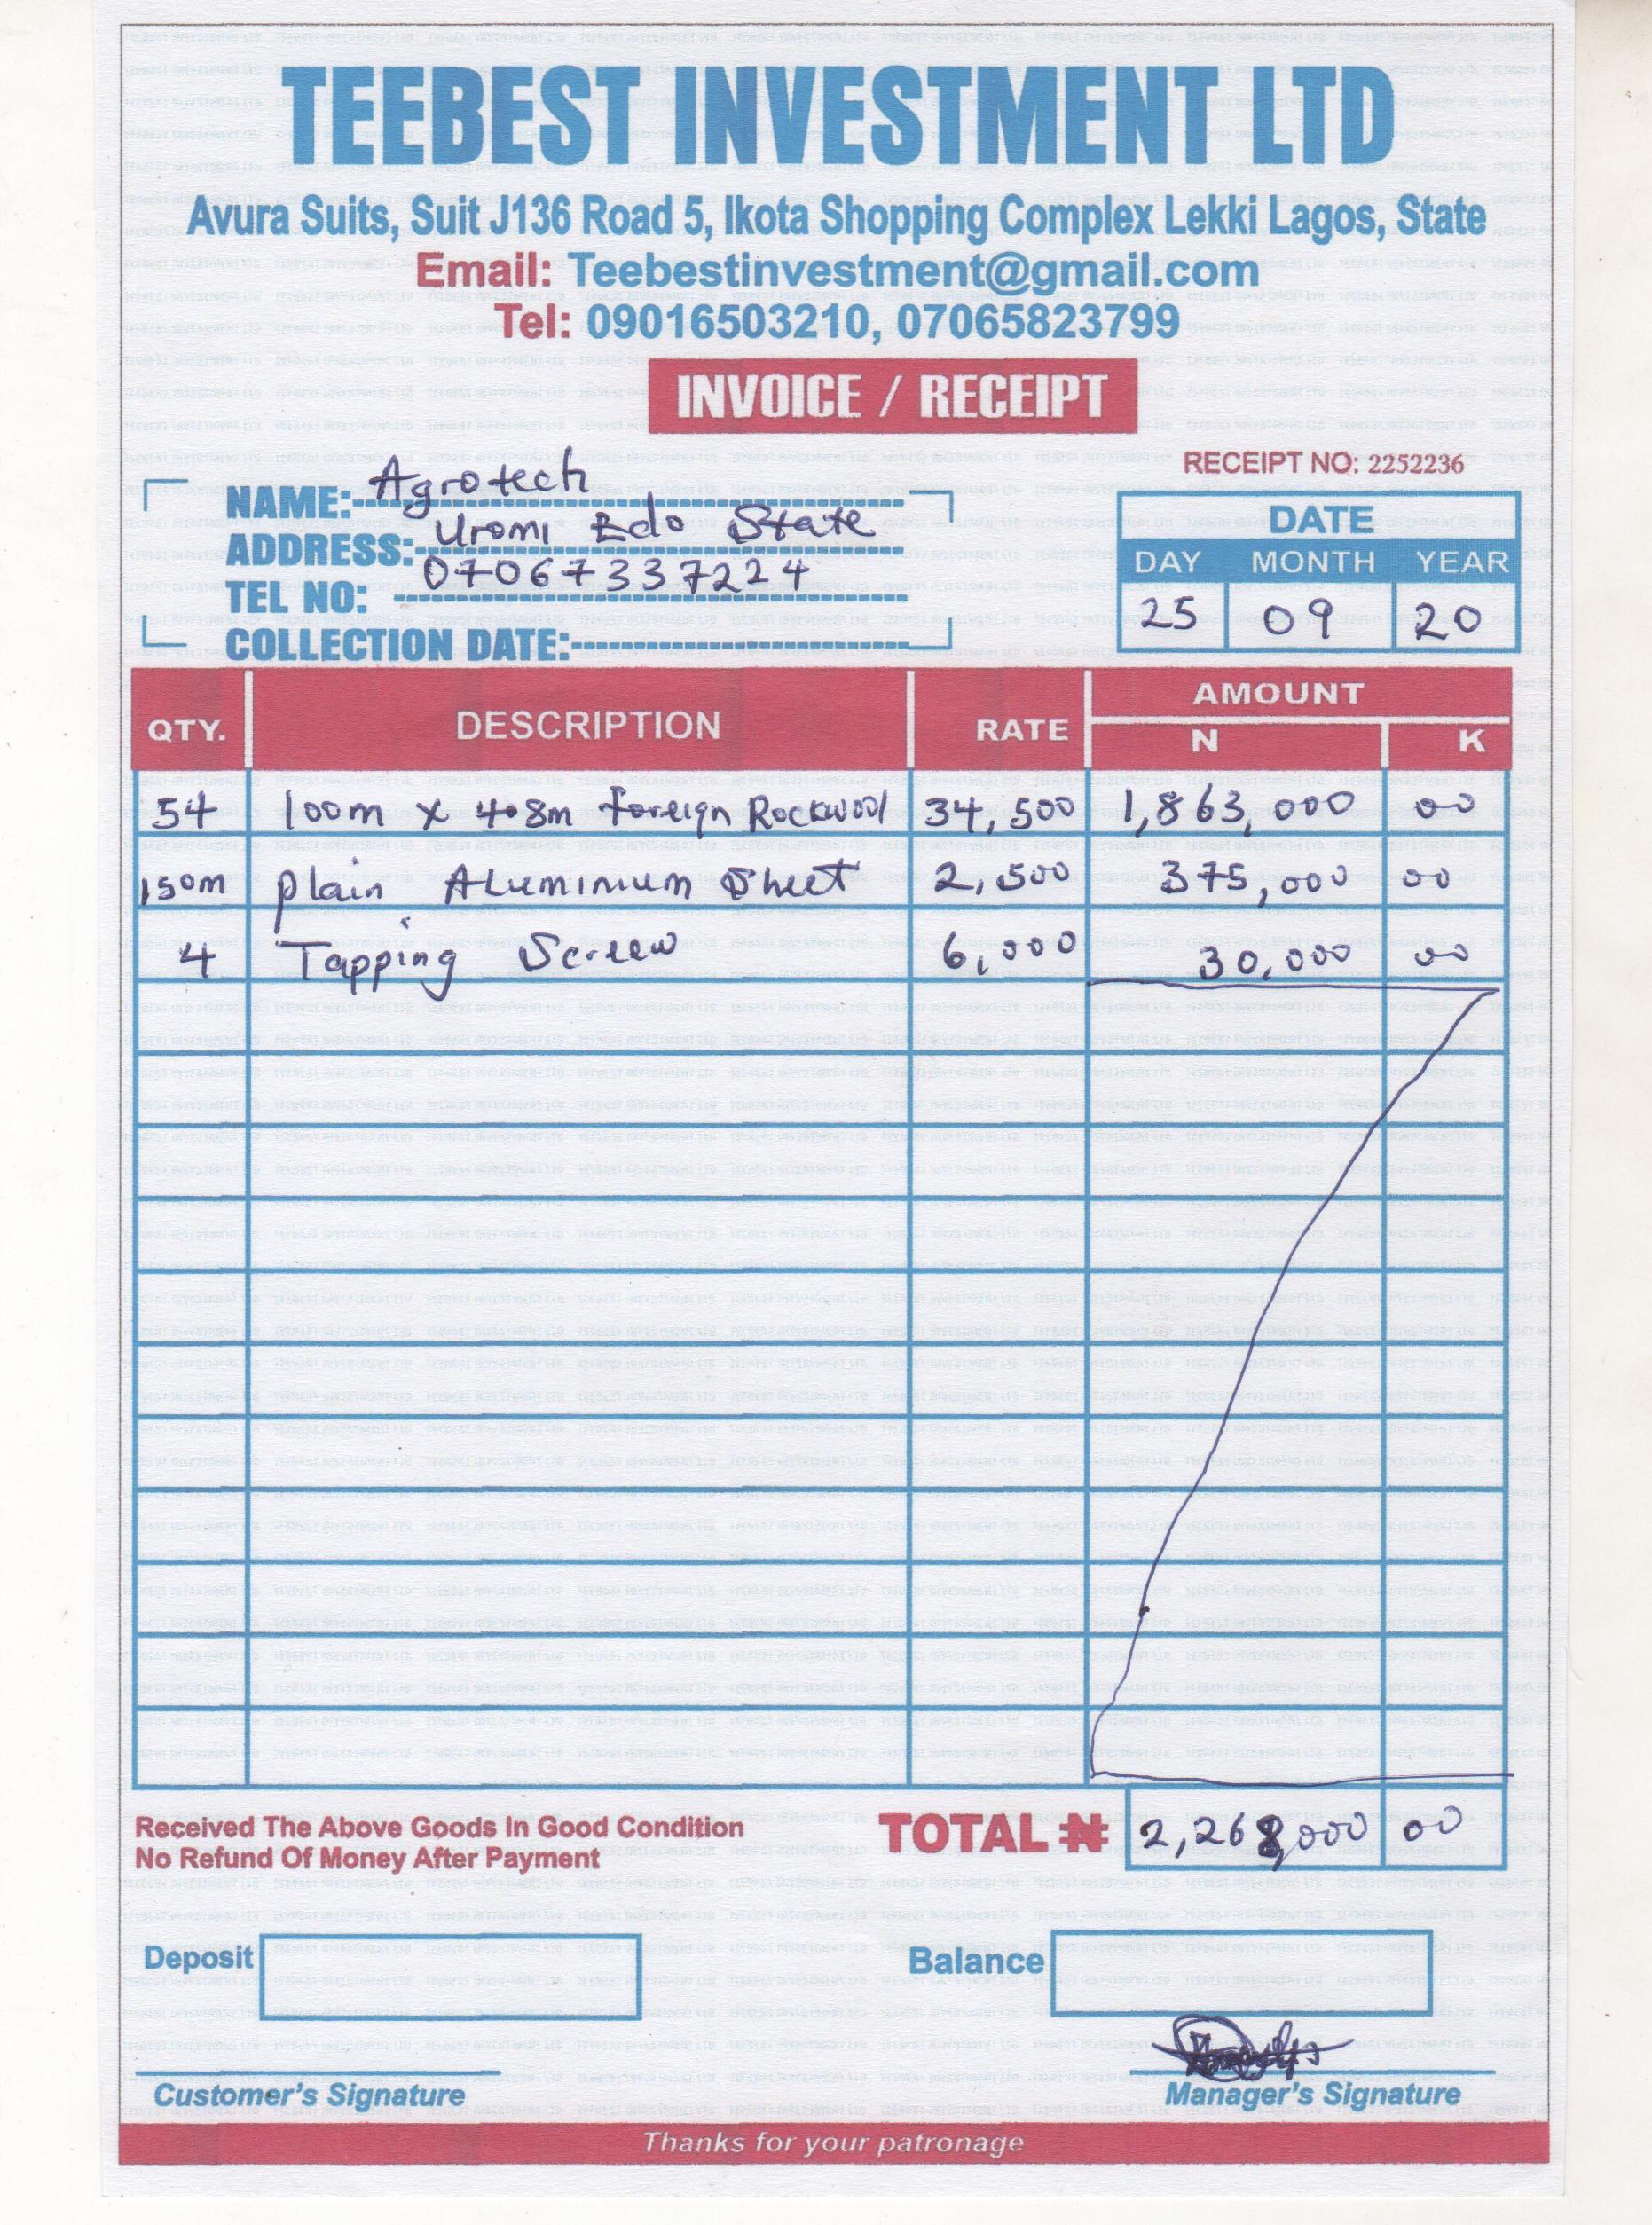 TEEBEST INVESTMENT LTD
Avura Suits, Suit J136 Road 5, Ikota Shopping Complex Lekki Lagos, State
Email: Teebestinvestment@gmail.com
Tel: 09016503210, 07065823799
INVOICE / RECEIPT
RECEIPT NO: 2252236
NAME: Agrotech
ADDRESS: Uromi Edo State
TEL NO: 07067337224
COLLECTION DATE:
DATE
DAY MONTH YEAR
25 09 20
QTY. DESCRIPTION RATE AMOUNT
N K
54 100m x 4.8m foreign Rockwool 34,500 1,863,000 00
150m plain Aluminium Sheet 2,500 375,000 00
4 Tapping Screw 6,000 30,000 00
Received The Above Goods In Good Condition
No Refund Of Money After Payment
TOTAL ₦ 2,268,000 00
Deposit
Balance
Customer's Signature
Manager's Signature
Thanks for your patronage